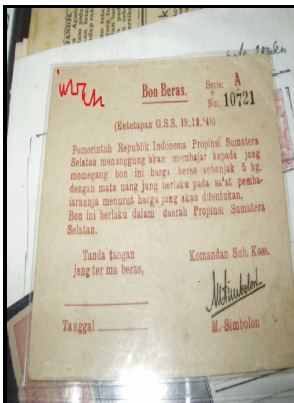 Bon Beras.
Serie: A
No: 10721
(Ketetapan G.S.S. 19.12.'48)
Pemerintah Republik Indonesia Propinsi Sumatera
Selatan menanggung akan membajar kepada jang
memegang bon ini harga beras sebanjak 5 kg.
dengan mata uang jang berlaku pada sa'at pemba-
jarannja menurut harga jang akan ditentukan.
Bon ini berlaku dalam daerah Propinsi Sumatera
Selatan.
Tanda tangan
jang ter ma beras,
Komandan Sub. Koss.
M Simbolon
Tanggal
M. Simbolon